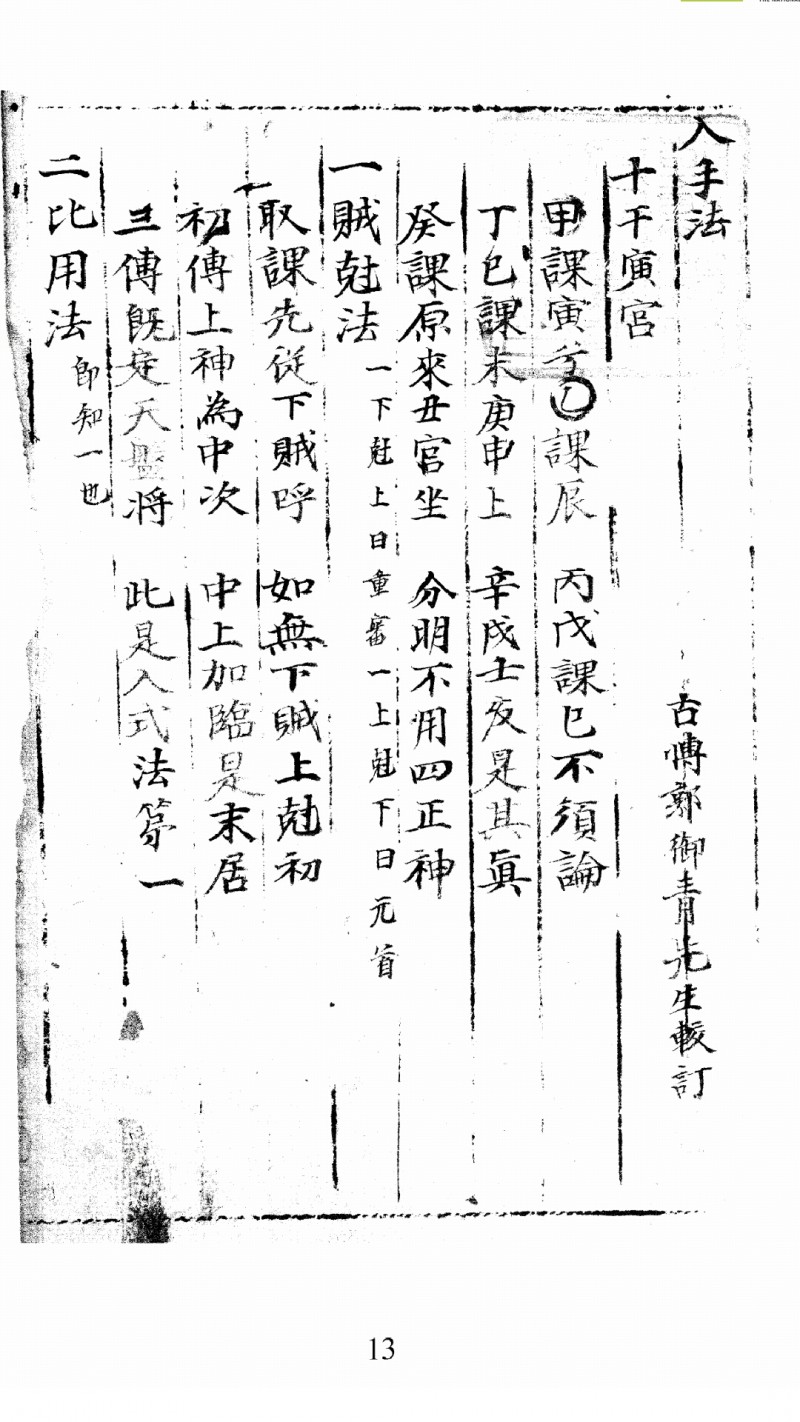 入手法
古愽鄭御青先生較訂
十干寅宮
甲課寅兮乙課辰　丙戊課巳不須論
丁己課未庚申上　辛戌士亥是其眞
癸課原來丑宮坐　分明不用四正神
一賊尅法　一下尅上曰重審一上尅下曰元首
取課先從下賊呼　如無下賊上尅初
初傳上神為中次　中上加臨是末居
三傳旣定天盤將　此是入式法第一
二比用法　即知一也
13